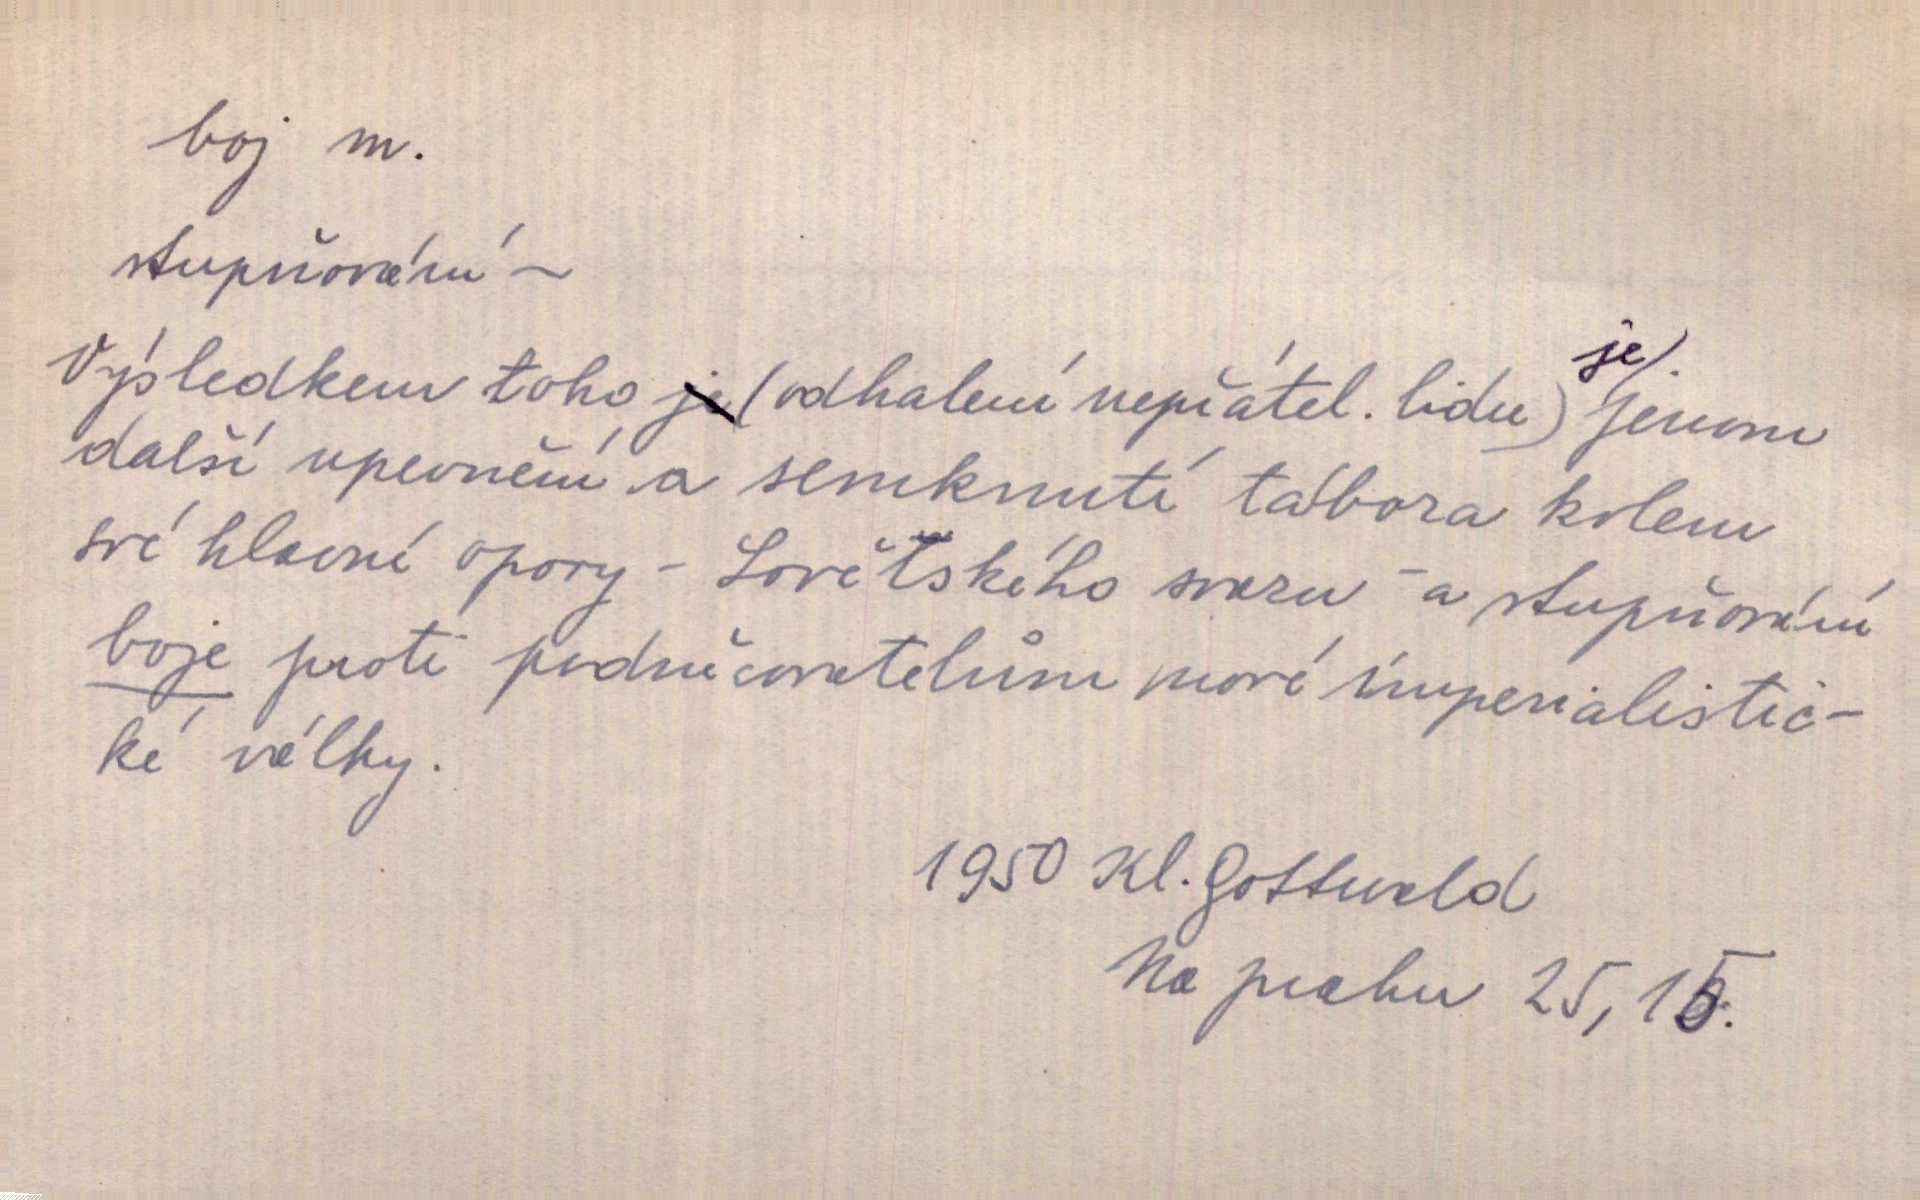 boj m.
stupňování ~
Výsledkem toho je (odhalení nepřátel. lidu) je jenom
další upevnění a semknutí tábora kolem
své hlavní opory - Sovětského svazu - a stupňování
boje proti podněcovatelům nové imperialistic-
ké války.
1950 Kl. Gottwald
Na prahu 25, 15.